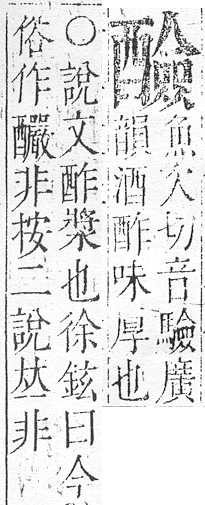 醶魚欠切音驗廣
韻酒酢味厚也
○說文酢漿也徐鉉曰今
俗作釅非按二說𠀤非